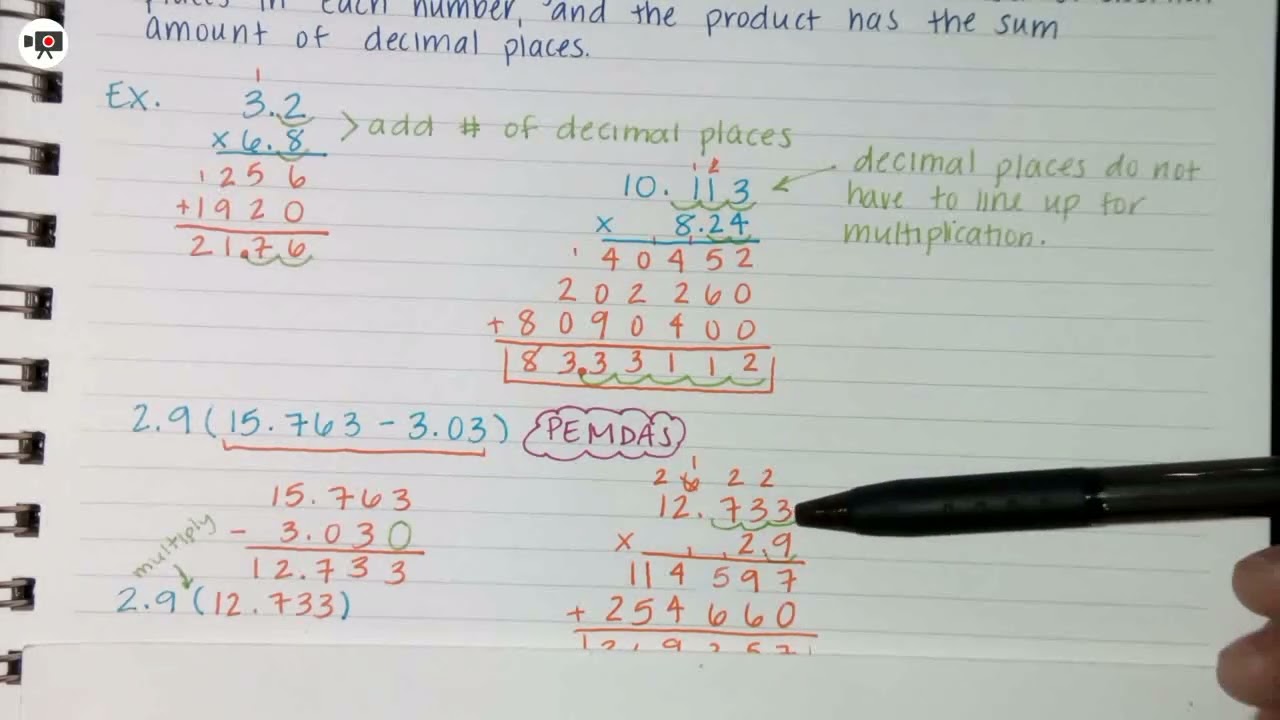 places in each number, and the product has the sum
amount of decimal places.
Ex.
1
3.2
x 6.8
1 2 5 6
+1 9 2 0
2 1.7 6
> add # of decimal places
1 2
10.113
x 8.24
1 4 0 4 5 2
2 0 2 2 6 0
+ 8 0 9 0 4 0 0
8 3.3 3 1 1 2
decimal places do not
have to line up for
multiplication.
2.9(15.763 - 3.03)
PEMDAS
15.763
- 3.030
12.733
multiply
2.9(12.733)
1
2 6 2 2
12.733
x 2.9
11 4 5 9 7
+ 2 5 4 6 6 0